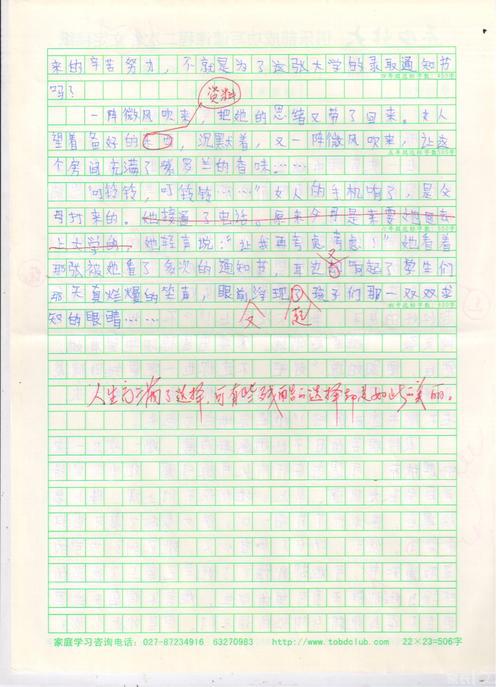 来的辛苦努力,不就是为了这张大学的录取通知书
四年级远标字数:400字
吗?
资料
一阵微风吹来,把她的思绪又带了回来。女人
望着备好的,沉默着,又一阵微风吹来,让这
五年级远标字数
个房间充满了紫罗兰的香味……
“叮铃铃,叮铃铃……”女人的手机响了,是父
母打来的。她接通了电话。原来今天是来要她回去
上大学的。她轻声说:“让我再考虑考虑!”她看着
那张被她看了多次的通知书,耳边又响起了学生们
那天真烂漫的笑声,眼前浮现了孩子们那一双双求
又 起
知的眼睛……
人生充满了选择,可有些残酷的选择却是如此之美丽。
家庭学习咨询电话:027-87234916 63270983 http://www.tobdclub.com 22×23=506字